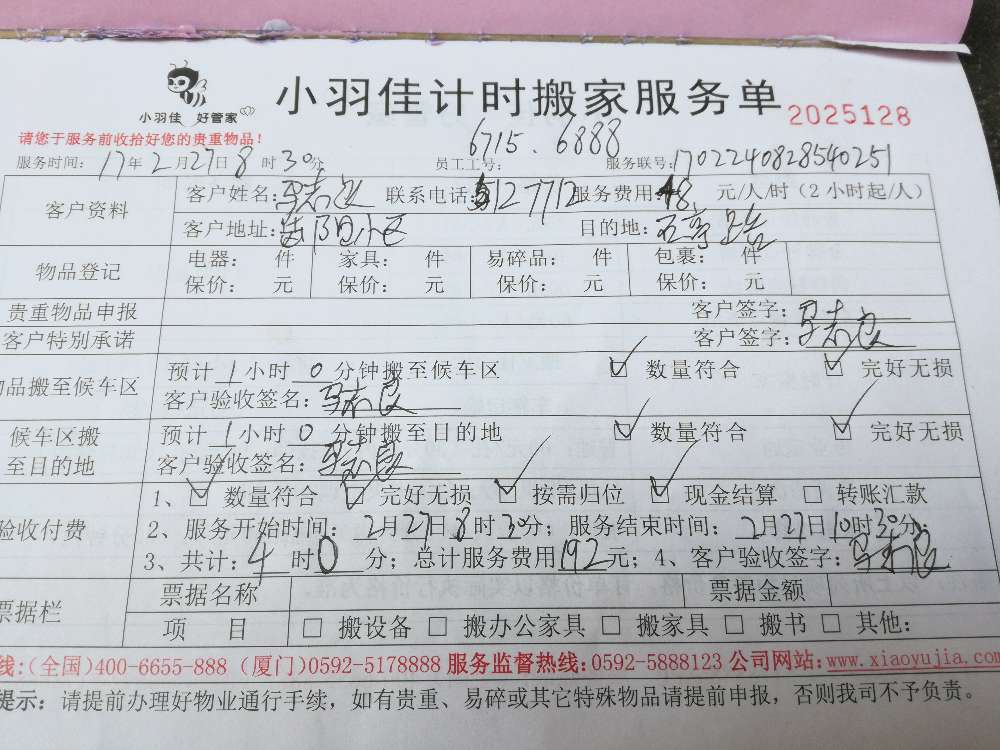 小羽佳 好管家
小羽佳计时搬家服务单 2025128
请您于服务前收拾好您的贵重物品!
6715.6888
服务时间: 17年2月27日8时30分 员工工号: 服务联号: 1702240828540251
客户资料 客户姓名: 联系电话: 5127712 服务费用: 48 元/人/时(2小时起/人)
客户地址: 阳小区 目的地: 石亭路
物品登记 电器: 件 家具: 件 易碎品: 件 包裹: 件
保价: 元 保价: 元 保价: 元 保价: 元
贵重物品申报 客户签字:
客户特别承诺 客户签字:
物品搬至候车区 预计1小时0分钟搬至候车区 ☑ 数量符合 ☑ 完好无损
客户验收签名:
候车区搬至目的地 预计1小时0分钟搬至目的地 ☑ 数量符合 ☑ 完好无损
客户验收签名:
验收付费 1、☑ 数量符合 ☑ 完好无损 ☑ 按需归位 ☑ 现金结算 □ 转账汇款
2、服务开始时间: 2月27日8时30分; 服务结束时间: 2月27日10时30分;
3、共计: 4时0分; 总计服务费用192元; 4、客户验收签字:
票据栏 票据名称 票据金额
项 目 □ 搬设备 □ 搬办公家具 □ 搬家具 □ 搬书 □ 其他:
线:(全国)400-6655-888 (厦门)0592-5178888 服务监督热线:0592-5888123 公司网站:www.xiaoyujia.com
提示: 请提前办理好物业通行手续, 如有贵重、易碎或其它特殊物品请提前申报, 否则我司不予负责。